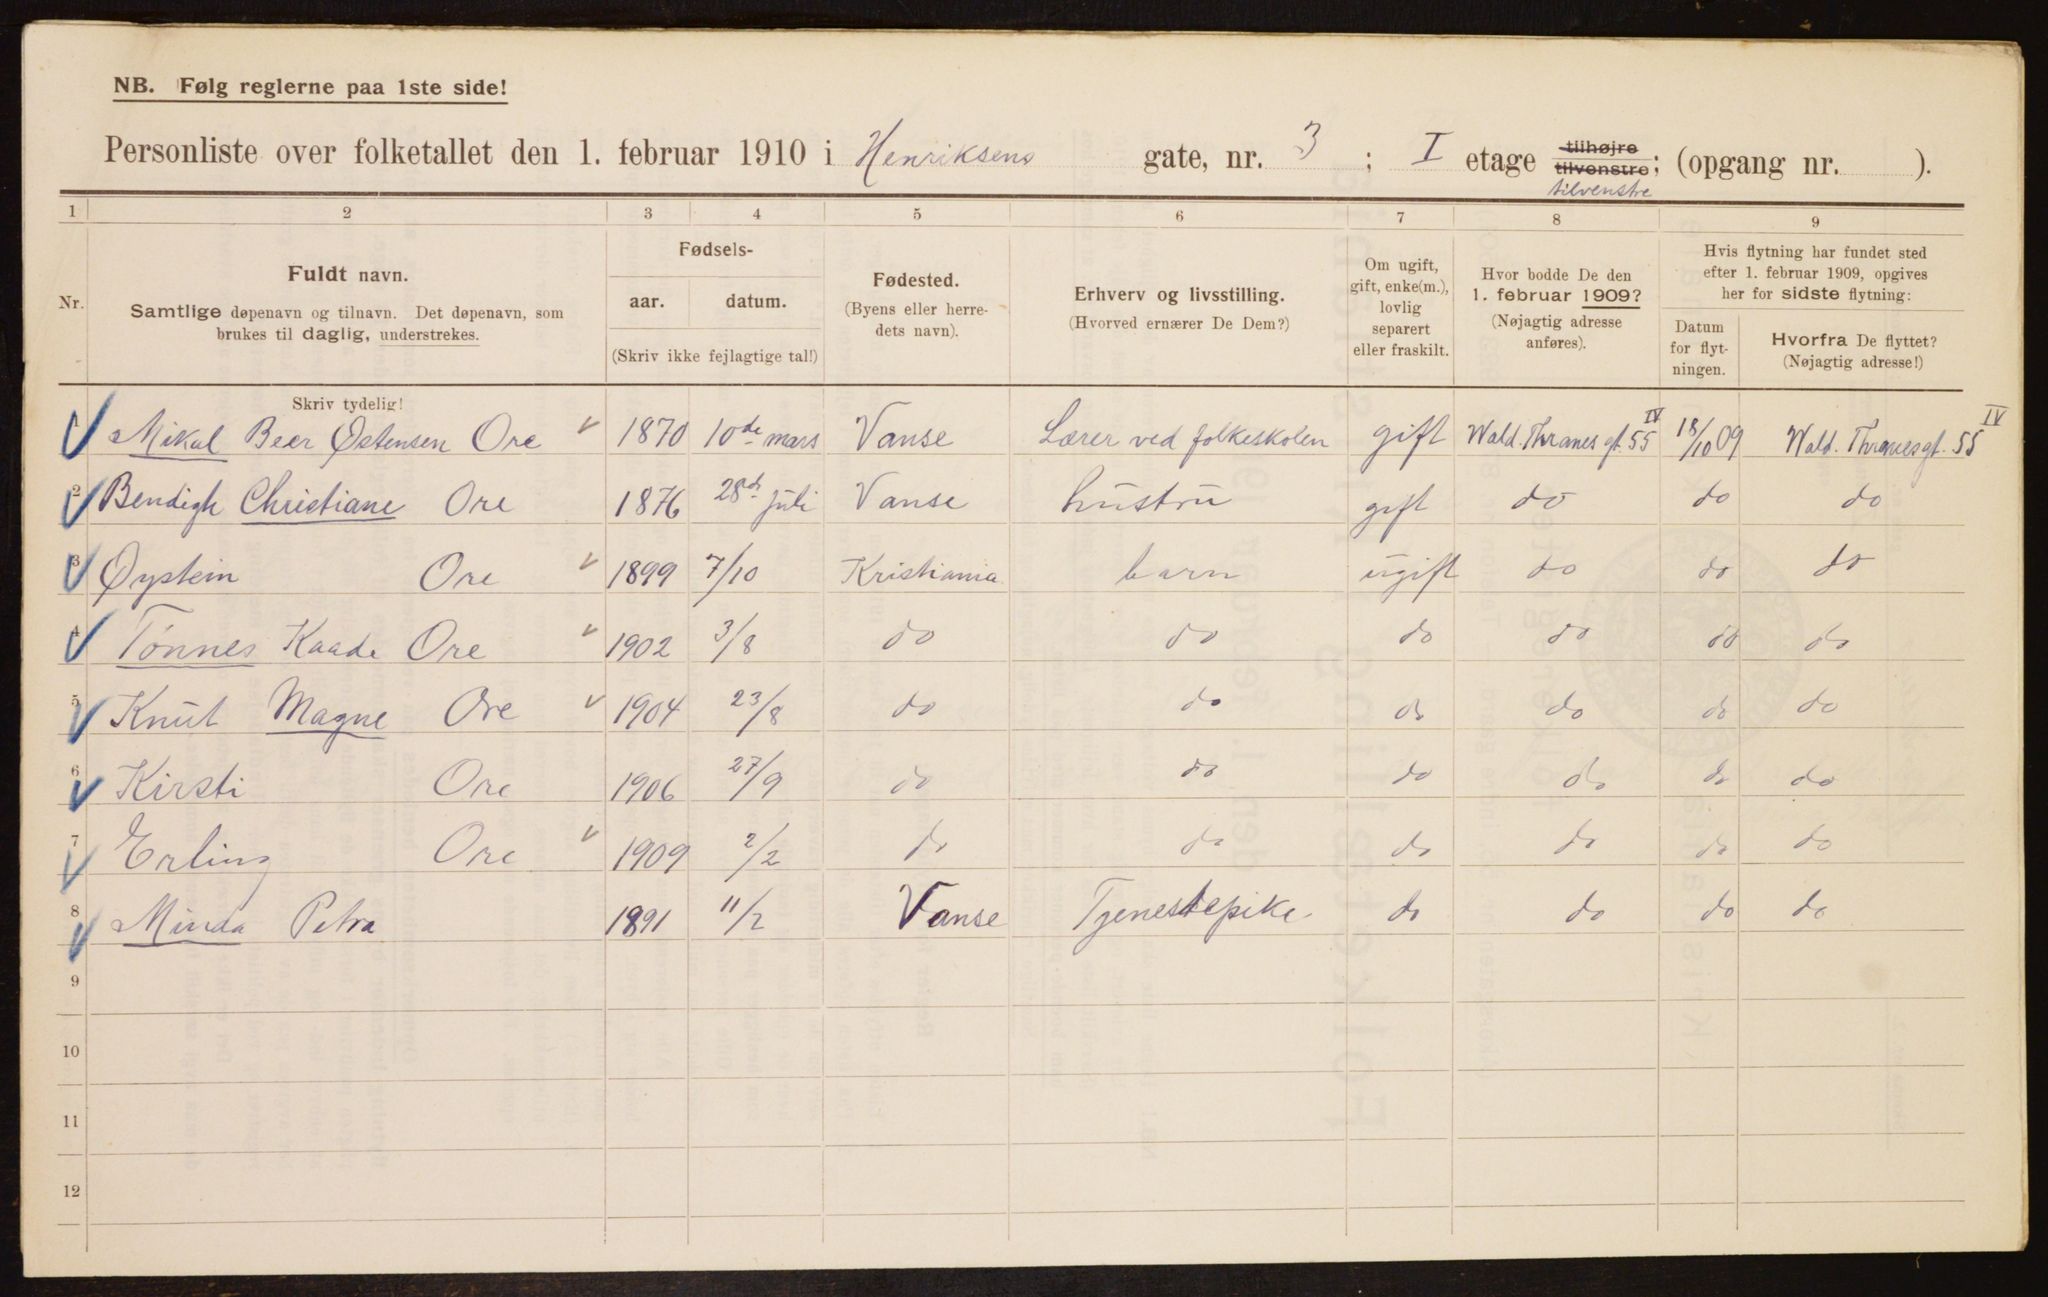 NB. Følg reglerne paa 1ste side!
Personliste over folketallet den 1. februar 1910 i Henriksens gate, nr. 3 ; I etage tilhøjre tilvenstre; (opgang nr. ).
tilvenstre
1 2 3 4 5 6 7 8 9
Nr.
Fuldt navn.
Samtlige døpenavn og tilnavn. Det døpenavn, som
brukes til daglig, understrekes.
Fødsels-
aar. datum.
(Skriv ikke fejlagtige tal!)
Fødested.
(Byens eller herre-
dets navn).
Erhverv og livsstilling.
(Hvorved ernærer De Dem?)
Om ugift,
gift, enke(m.),
lovlig
separert
eller fraskilt.
Hvor bodde De den
1. februar 1909?
(Nøjagtig adresse
anføres).
Hvis flytning har fundet sted
efter 1. februar 1909, opgives
her for sidste flytning:
Datum
for flyt-
ningen.
Hvorfra De flyttet?
(Nøjagtig adresse!)
Skriv tydelig!
1 Mikal Beer Østensen Ore 1870 10de mars Vanse Lærer ved folkeskolen gift Wald. Thranes gt. 55 IV 18/10 09 Wald. Thranes gt. 55 IV
2 Bendigh Christiane Ore 1876 28de juli Vanse hustru gift do do do
3 Øystein Ore 1899 7/10 Kristiania barn ugift do do do
4 Tönnes Kaada Ore 1902 3/8 do do do do do do
5 Knut Magne Ore 1904 23/8 do do do do do do
6 Kirsti Ore 1906 27/9 do do do do do do
7 Erling Ore 1909 2/2 do do do do do do
8 Minda Petra 1891 11/2 Vanse Tjenestepike do do do do
9
10
11
12